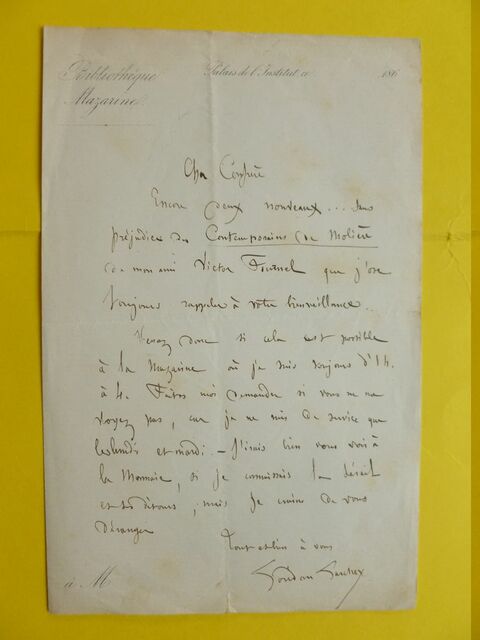 Bibliothèque
Mazarine.
Palais de l'Institut, ce 186
Cher Confrère
Encore deux nouveaux... sans
préjudice des Contemporains de Molière
de mon ami Victor Fournel que j'ose
toujours rappeler à votre bienveillance.
Venez donc si cela est possible
à la Mazarine où je suis toujours d'1 h.
à 4. Faites moi demander si vous ne me
voyez pas, car je ne suis de service que
les lundi et mardi. – J'irais bien vous voir à
la Monnaie, si je connaissais le détail
et les détours, mais je crains de vous
déranger
Tout et bien à vous
à M